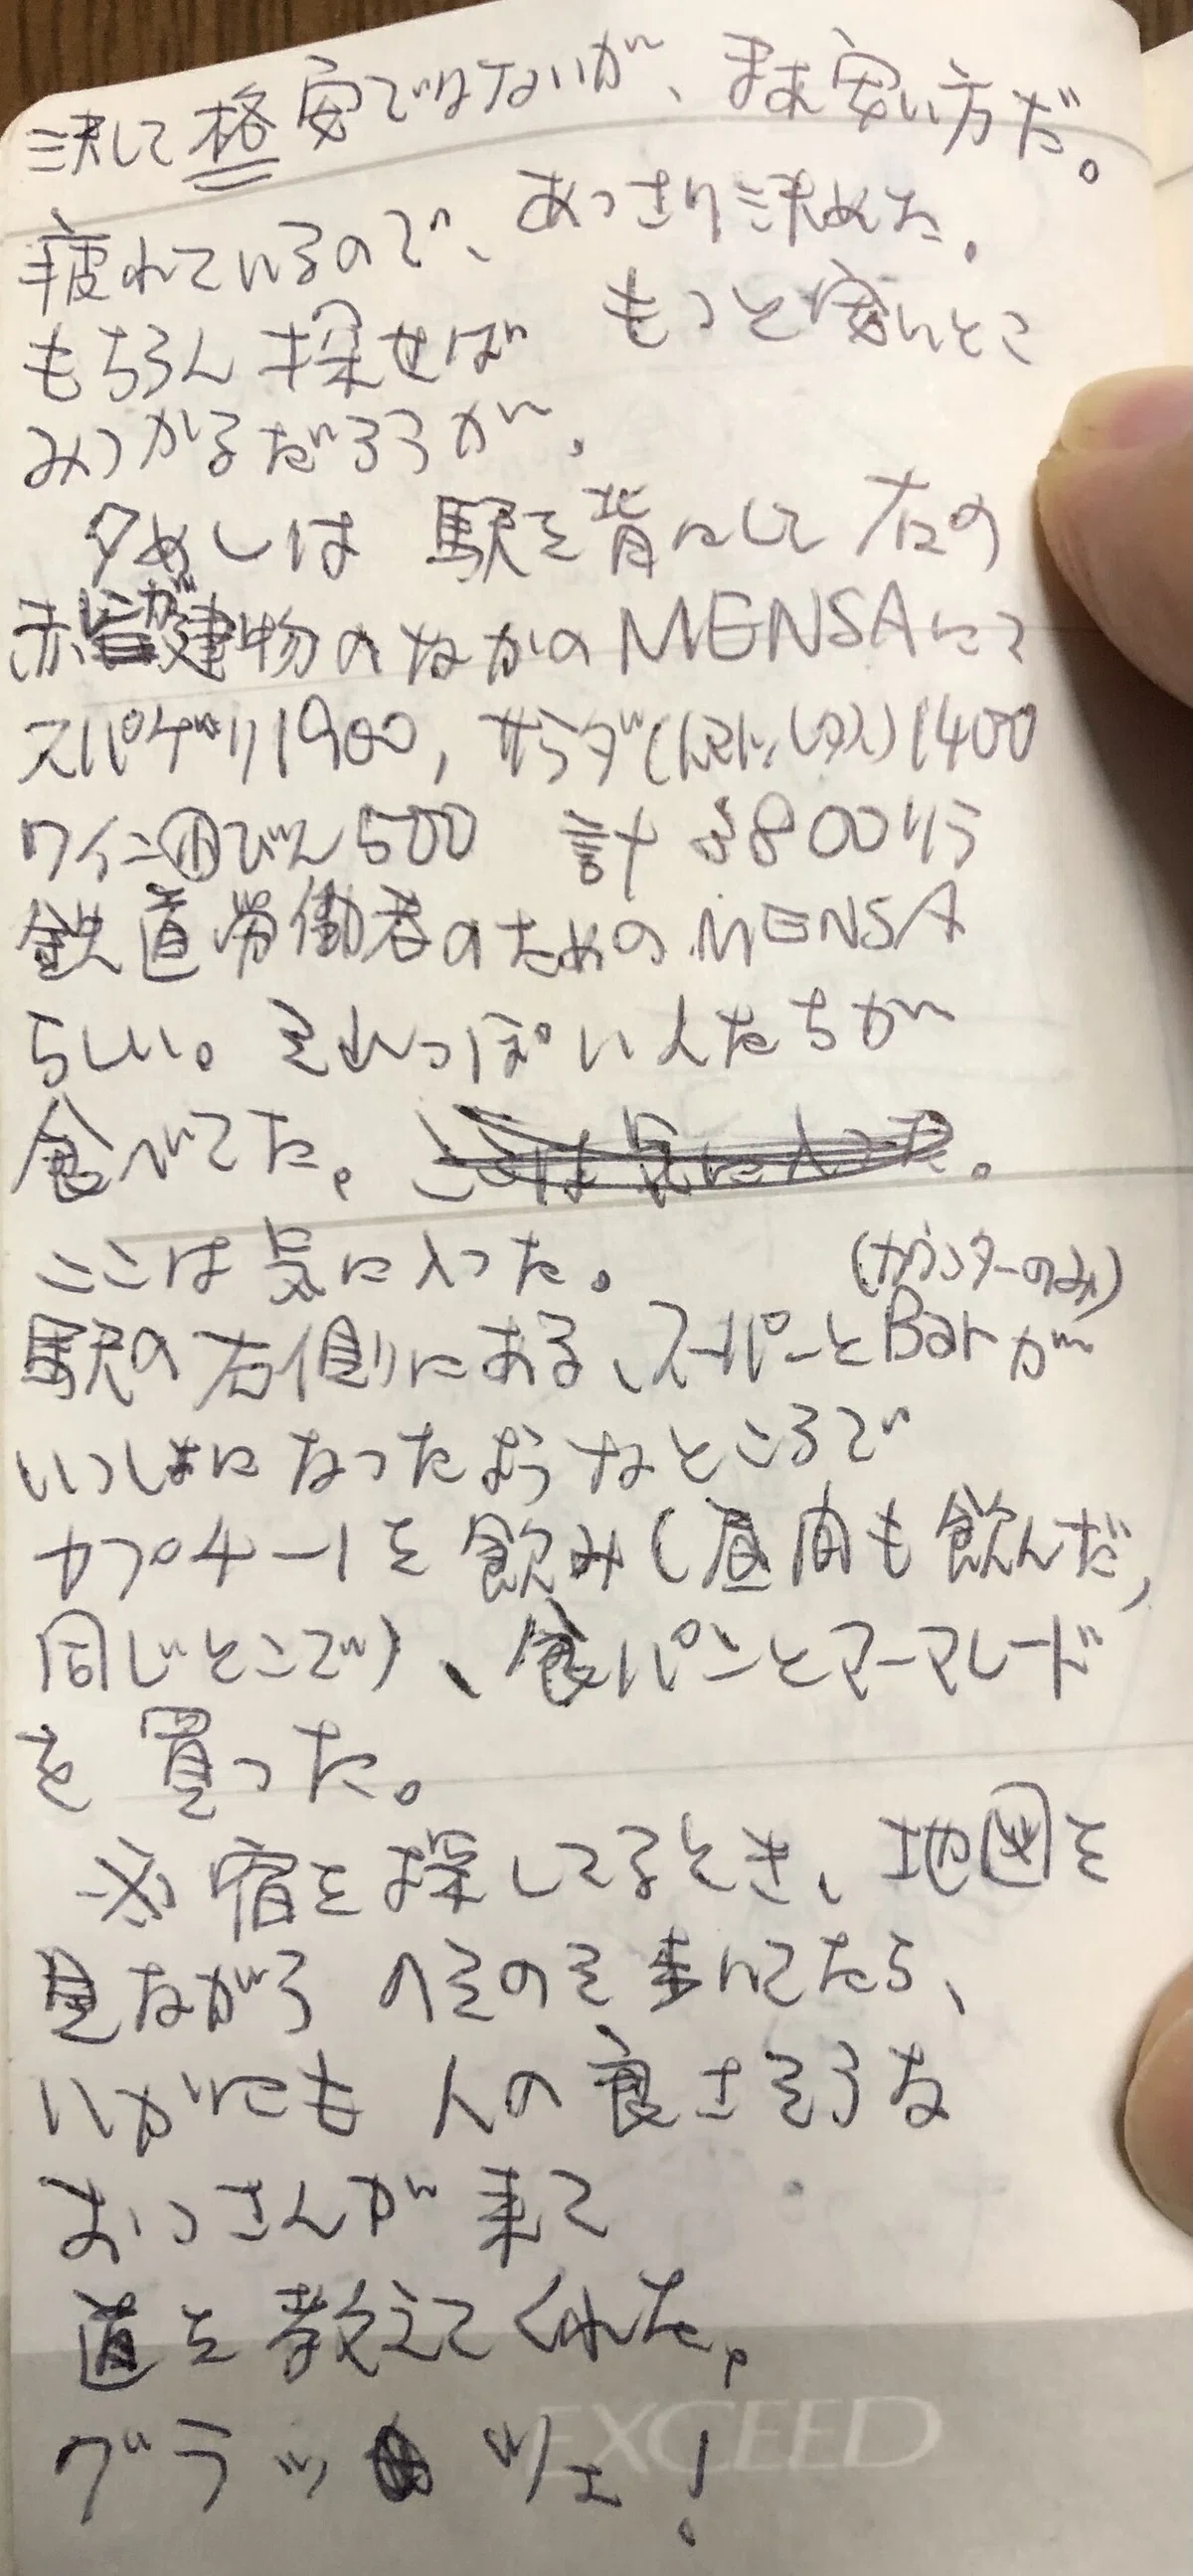 決して格安ではないが、まあ安い方だ。
疲れているので、あっさり決めた。
もちろん探せば もっと安いとこ
みつかるだろうが。
夕めしは 駅を背にして右の
赤レンガ建物のなかのMENSAにて
スパゲッティ1900, サラダ(トマト、レタス)1400
ワイン小びん500 計3800リラ
鉄道労働者のためのMENSA
らしい。それっぽい人たちが
食べてた。ここは気に入った。
ここは気に入った。 (カウンターのみ)
駅の右側にある、スーパーとBarが
いっしょになったようなところで
カプチーノを飲み(昼間も飲んだ,
同じとこで)、食パンとマーマレード
を買った。
※宿を探してるとき、地図を
見ながら そのを歩いてたら、
いかにも人の良さそうな
おっさんが来て
道を教えてくれた。
グラッツェ!
EXCEED